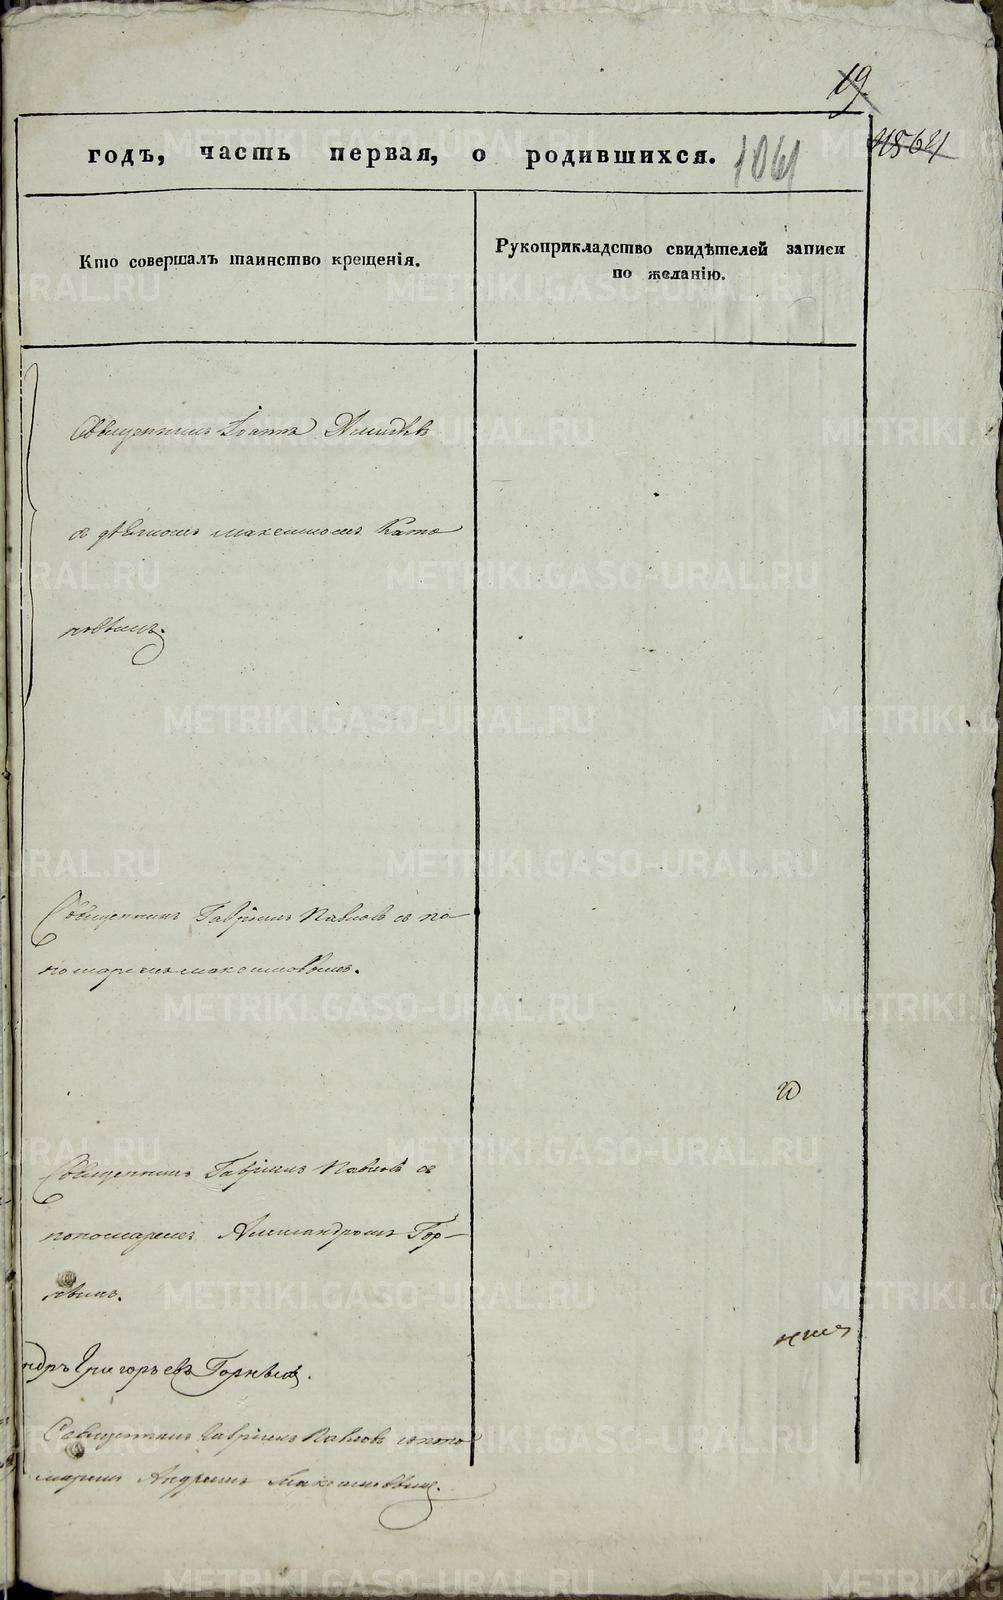 19.
годъ, часть первая, о родившихся.
1061
Кто совершалъ таинство крещенія.
Рукоприкладство свидѣтелей записи
по желанію.
Священникъ Іоаннъ
съ діакономъ Максимомъ Като
новымъ.
Священникъ Гавріилъ Павловъ съ по-
номаремъ Максимовымъ.
Священникъ Гавріилъ Павловъ съ
пономаремъ Александромъ Гор-
ндръ Григорьевъ
Священникъ Гавріилъ Павловъ съ поно
маремъ Андреемъ Максимовымъ.
METRIKI.GASO-URAL.RU